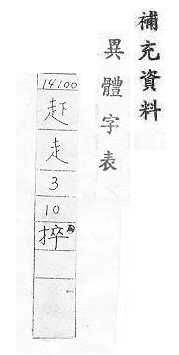 補充資料
異體字表
14100
走
3
10
捽